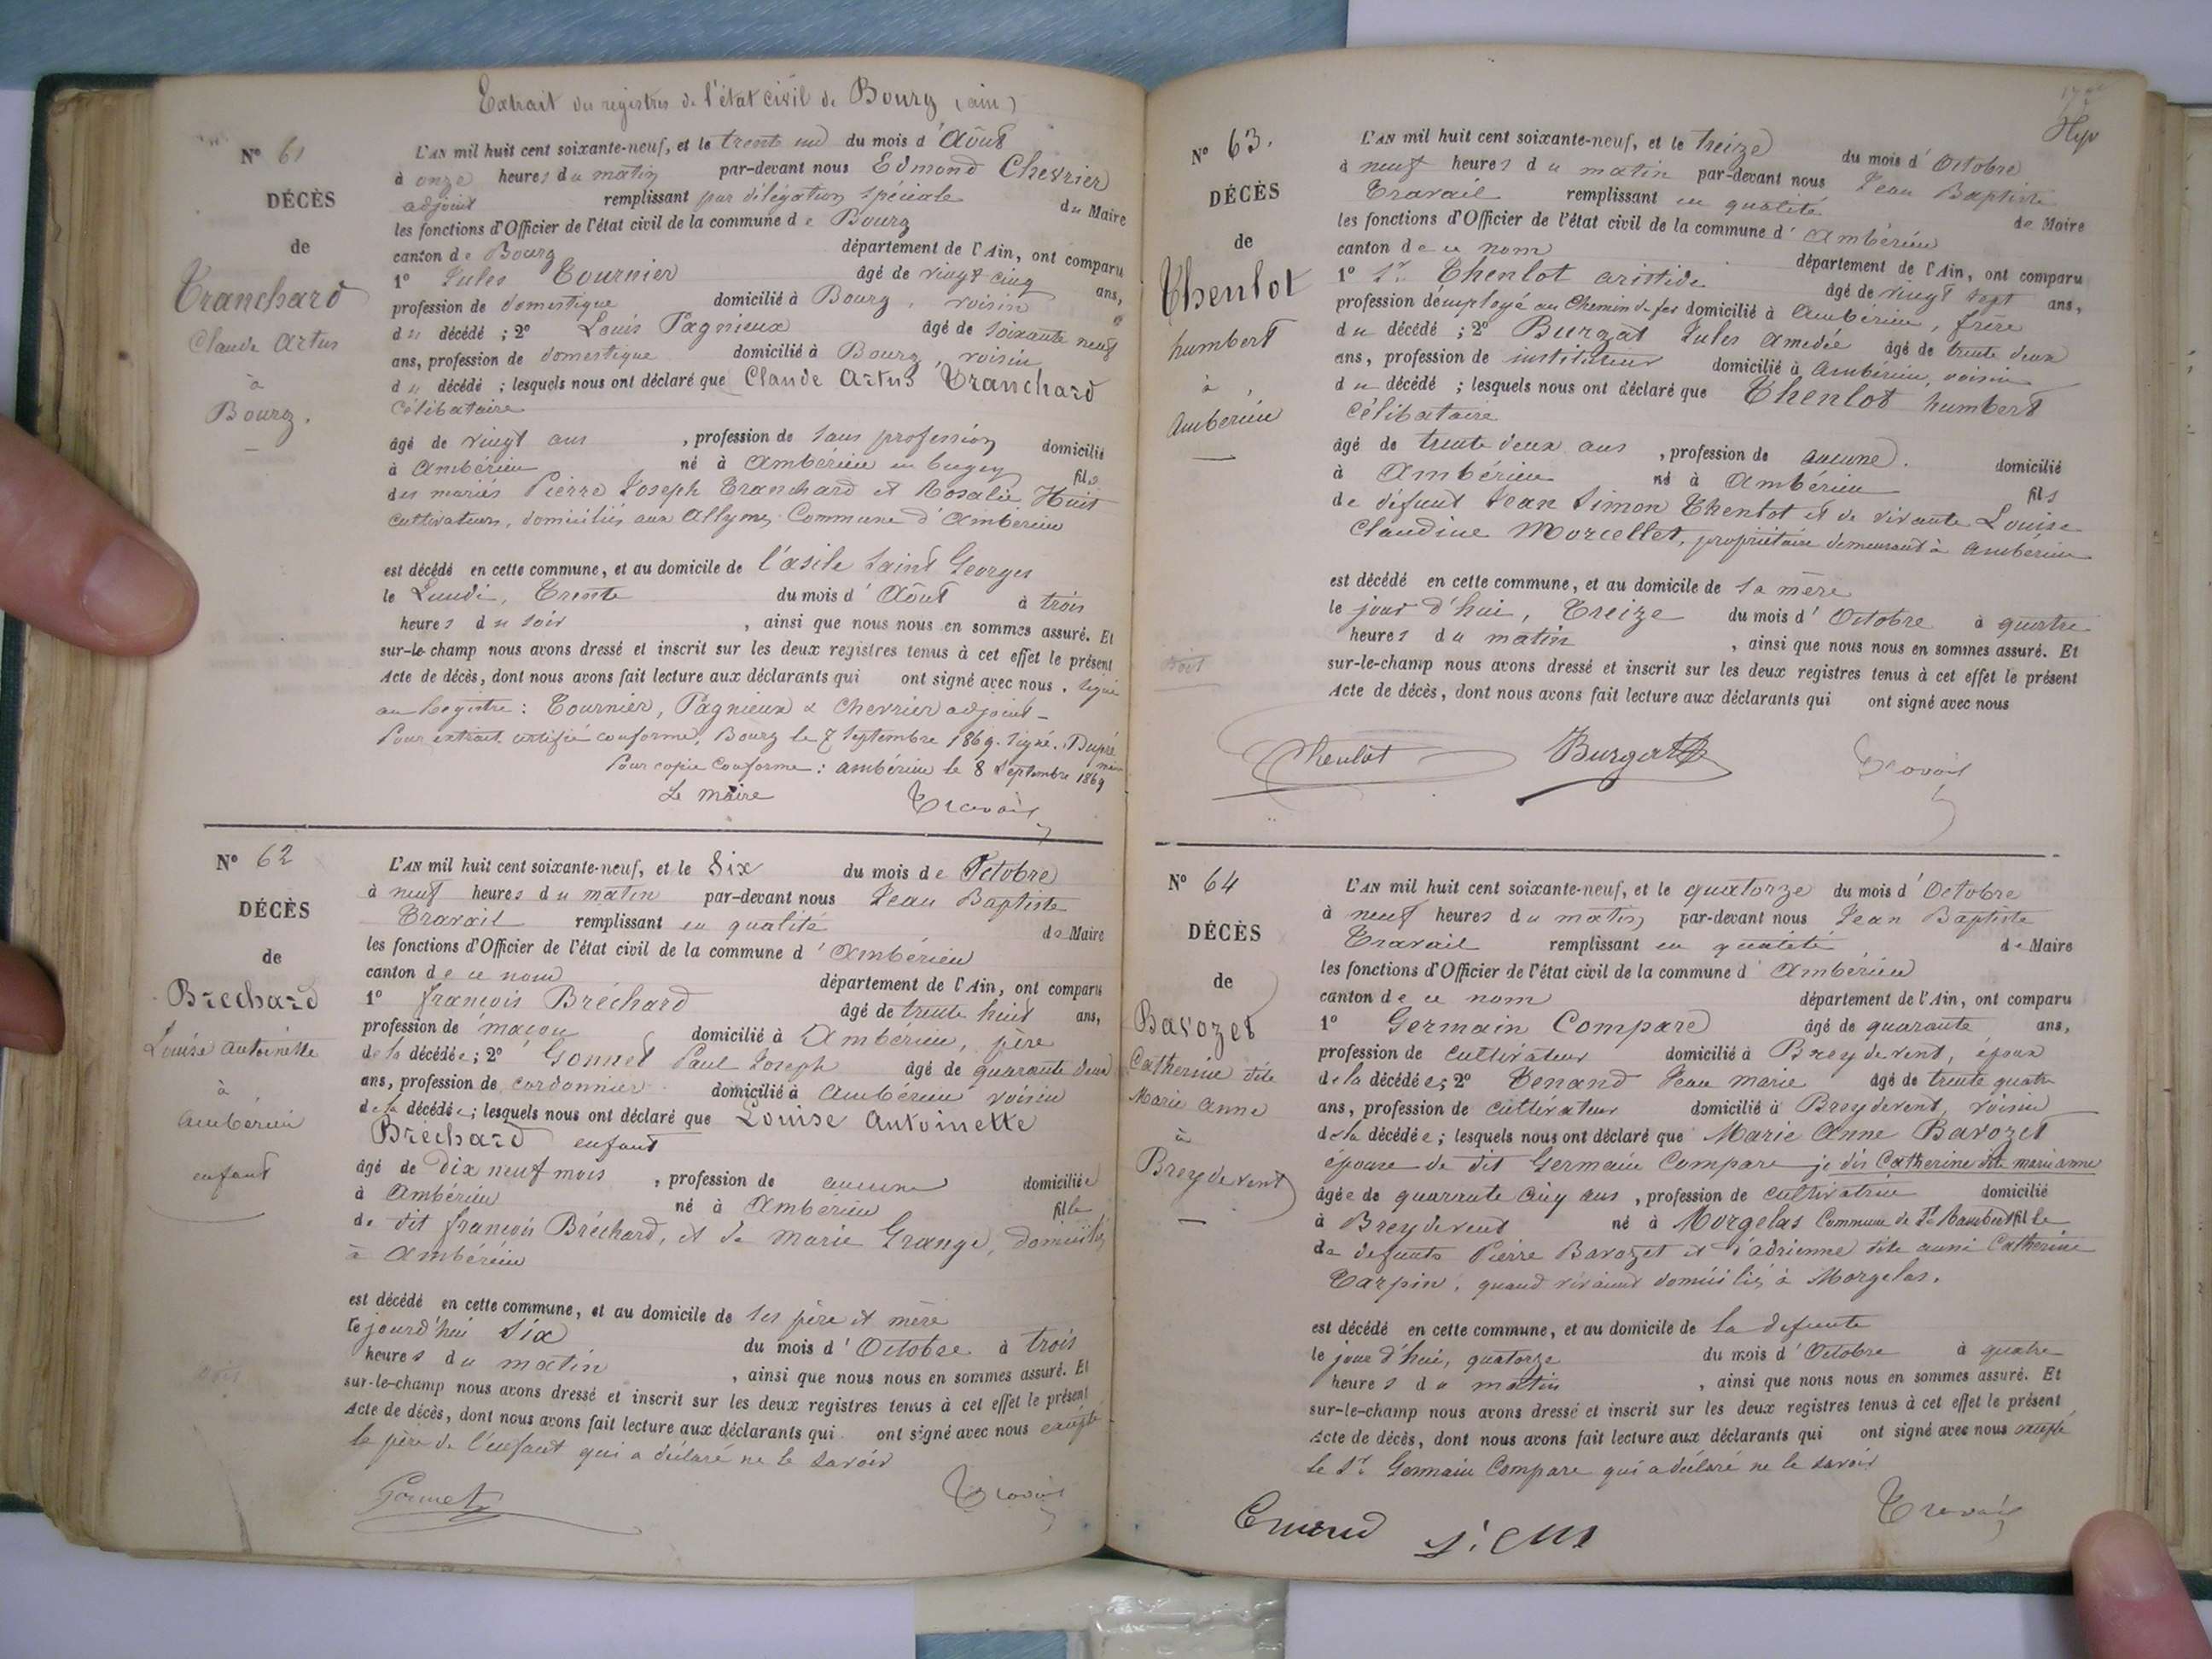 Extrait des registres de l'état civil de Bourg (ain)
N° 61
DÉCÈS
de
Tranchard
Claude Artus
à
Bourg.
L'AN mil huit cent soixante-neuf, et le trente un du mois d'Août
à onze heures du matin par-devant nous Edmond Chevrier
adjoint remplissant par délégation spéciale du Maire
les fonctions d'Officier de l'état civil de la commune de Bourg
canton de Bourg département de l'Ain, ont comparu
1° Jules Tournier âgé de vingt cinq ans,
profession de domestique domicilié à Bourg, voisin
du décédé ; 2° Louis Pagnieux âgé de soixante neuf
ans, profession de domestique domicilié à Bourg, voisin
du décédé ; lesquels nous ont déclaré que Claude Artus Tranchard
Célibataire
âgé de vingt ans , profession de sans profession domicilié
à Ambérieu né à Ambérieu en bugey fils
des mariés Pierre Joseph Tranchard et Rosalie Huit
cultivateurs, domiciliés aux Allymes Commune d'Ambérieu
est décédé en cette commune, et au domicile de l'asile Saint Georges
le Lundi, Trente du mois d'Août à trois
heures du soir , ainsi que nous nous en sommes assuré. Et
sur-le-champ nous avons dressé et inscrit sur les deux registres tenus à cet effet le présent
Acte de décès, dont nous avons fait lecture aux déclarants qui ont signé avec nous. signé
au Registre : Tournier, Pagnieux & Chevrier adjoint -
Pour extrait certifié conforme, Bourg le 7 Septembre 1869. signé. Dupré
maire
Pour copie Conforme : ambérieu le 8 Septembre 1869
Le Maire Travail
N° 62
DÉCÈS
de
Bréchard
Louise antoinette
à
ambérieu
enfant
L'AN mil huit cent soixante-neuf, et le Six du mois de Octobre
à neuf heures du matin par-devant nous Jean Baptiste
Travail remplissant en qualité de Maire
les fonctions d'Officier de l'état civil de la commune d'Ambérieu
canton de ce nom département de l'Ain, ont comparu
1° françois Bréchard âgé de trente huit ans,
profession de maçon domicilié à Ambérieu, père
de la décédée ; 2° Gonnet Paul Joseph âgé de quarante deux
ans, profession de cordonnier domicilié à Ambérieu voisin
de la décédée ; lesquels nous ont déclaré que Louise Antoinette
Bréchard enfant
âgé de Dix neuf mois , profession de aucune domiciliée
à Ambérieu né à Ambérieu fille
de dit françois Bréchard, et de Marie Grange, domiciliés
à Ambérieu
est décédé en cette commune, et au domicile de ses père et mère
le jourd'hui Six du mois d'Octobre à trois
heures du matin , ainsi que nous nous en sommes assuré. Et
sur-le-champ nous avons dressé et inscrit sur les deux registres tenus à cet effet le présent
Acte de décès, dont nous avons fait lecture aux déclarants qui ont signé avec nous excepté
le père de l'enfant qui a déclaré ne le savoir
Gonnet Travail
N° 63.
DÉCÈS
de
Thenlot
humbert
à
Ambérieu
L'AN mil huit cent soixante-neuf, et le treize du mois d'Octobre
à neuf heures du matin par-devant nous Jean Baptiste
Travail remplissant en qualité de Maire
les fonctions d'Officier de l'état civil de la commune d'Ambérieu
canton de ce nom département de l'Ain, ont comparu
1° Sr Thenlot aristide âgé de vingt sept ans,
profession d'employé au Chemin de fer domicilié à Ambérieu, frère
du décédé ; 2° Burgat Jules amedée âgé de trente deux
ans, profession de instituteur domicilié à Ambérieu, voisin
du décédé ; lesquels nous ont déclaré que Thenlot humbert
Célibataire
âgé de trente deux ans , profession de aucune. domicilié
à Ambérieu né à Ambérieu fils
de défunt Jean Simon Thenlot et de vivante Louise
Claudine Morcellet, propriétaire demeurant à ambérieu
est décédé en cette commune, et au domicile de sa mère
le jour d'hui, Treize du mois d'Octobre à quatre
heures du matin , ainsi que nous nous en sommes assuré. Et
sur-le-champ nous avons dressé et inscrit sur les deux registres tenus à cet effet le présent
Acte de décès, dont nous avons fait lecture aux déclarants qui ont signé avec nous
Thenlot Burgat Travail
N° 64
DÉCÈS
de
Bavozet
Catherine dite
Marie Anne
à
Breydevent
L'AN mil huit cent soixante-neuf, et le quatorze du mois d'Octobre
à neuf heures du matin par-devant nous Jean Baptiste
Travail remplissant en qualité de Maire
les fonctions d'Officier de l'état civil de la commune d'Ambérieu
canton de ce nom département de l'Ain, ont comparu
1° Germain Compare âgé de quarante ans,
profession de cultivateur domicilié à Breydevent, époux
de la décédée ; 2° Tenand Jean marie âgé de trente quatre
ans, profession de cultivateur domicilié à Breydevent, voisin
de la décédée ; lesquels nous ont déclaré que Marie Anne Bavozet
épouse de dit Germain Compare je dis Catherine dite marie anne
âgée de quarante cinq ans , profession de cultivatrice domicilié
à Breydevent né à Morgelas Commune de St Rambert fille
de defunts Pierre Bavozet et d'adrienne dite aussi Catherine
Tarpin, quand vivaient domiciliés à Morgelas.
est décédé en cette commune, et au domicile de la défunte
le jour d'hui, quatorze du mois d'Octobre à quatre
heures du matin , ainsi que nous nous en sommes assuré. Et
sur-le-champ nous avons dressé et inscrit sur les deux registres tenus à cet effet le présent
Acte de décès, dont nous avons fait lecture aux déclarants qui ont signé avec nous excepté
le Sr Germain Compare qui a déclaré ne le savoir
Travail